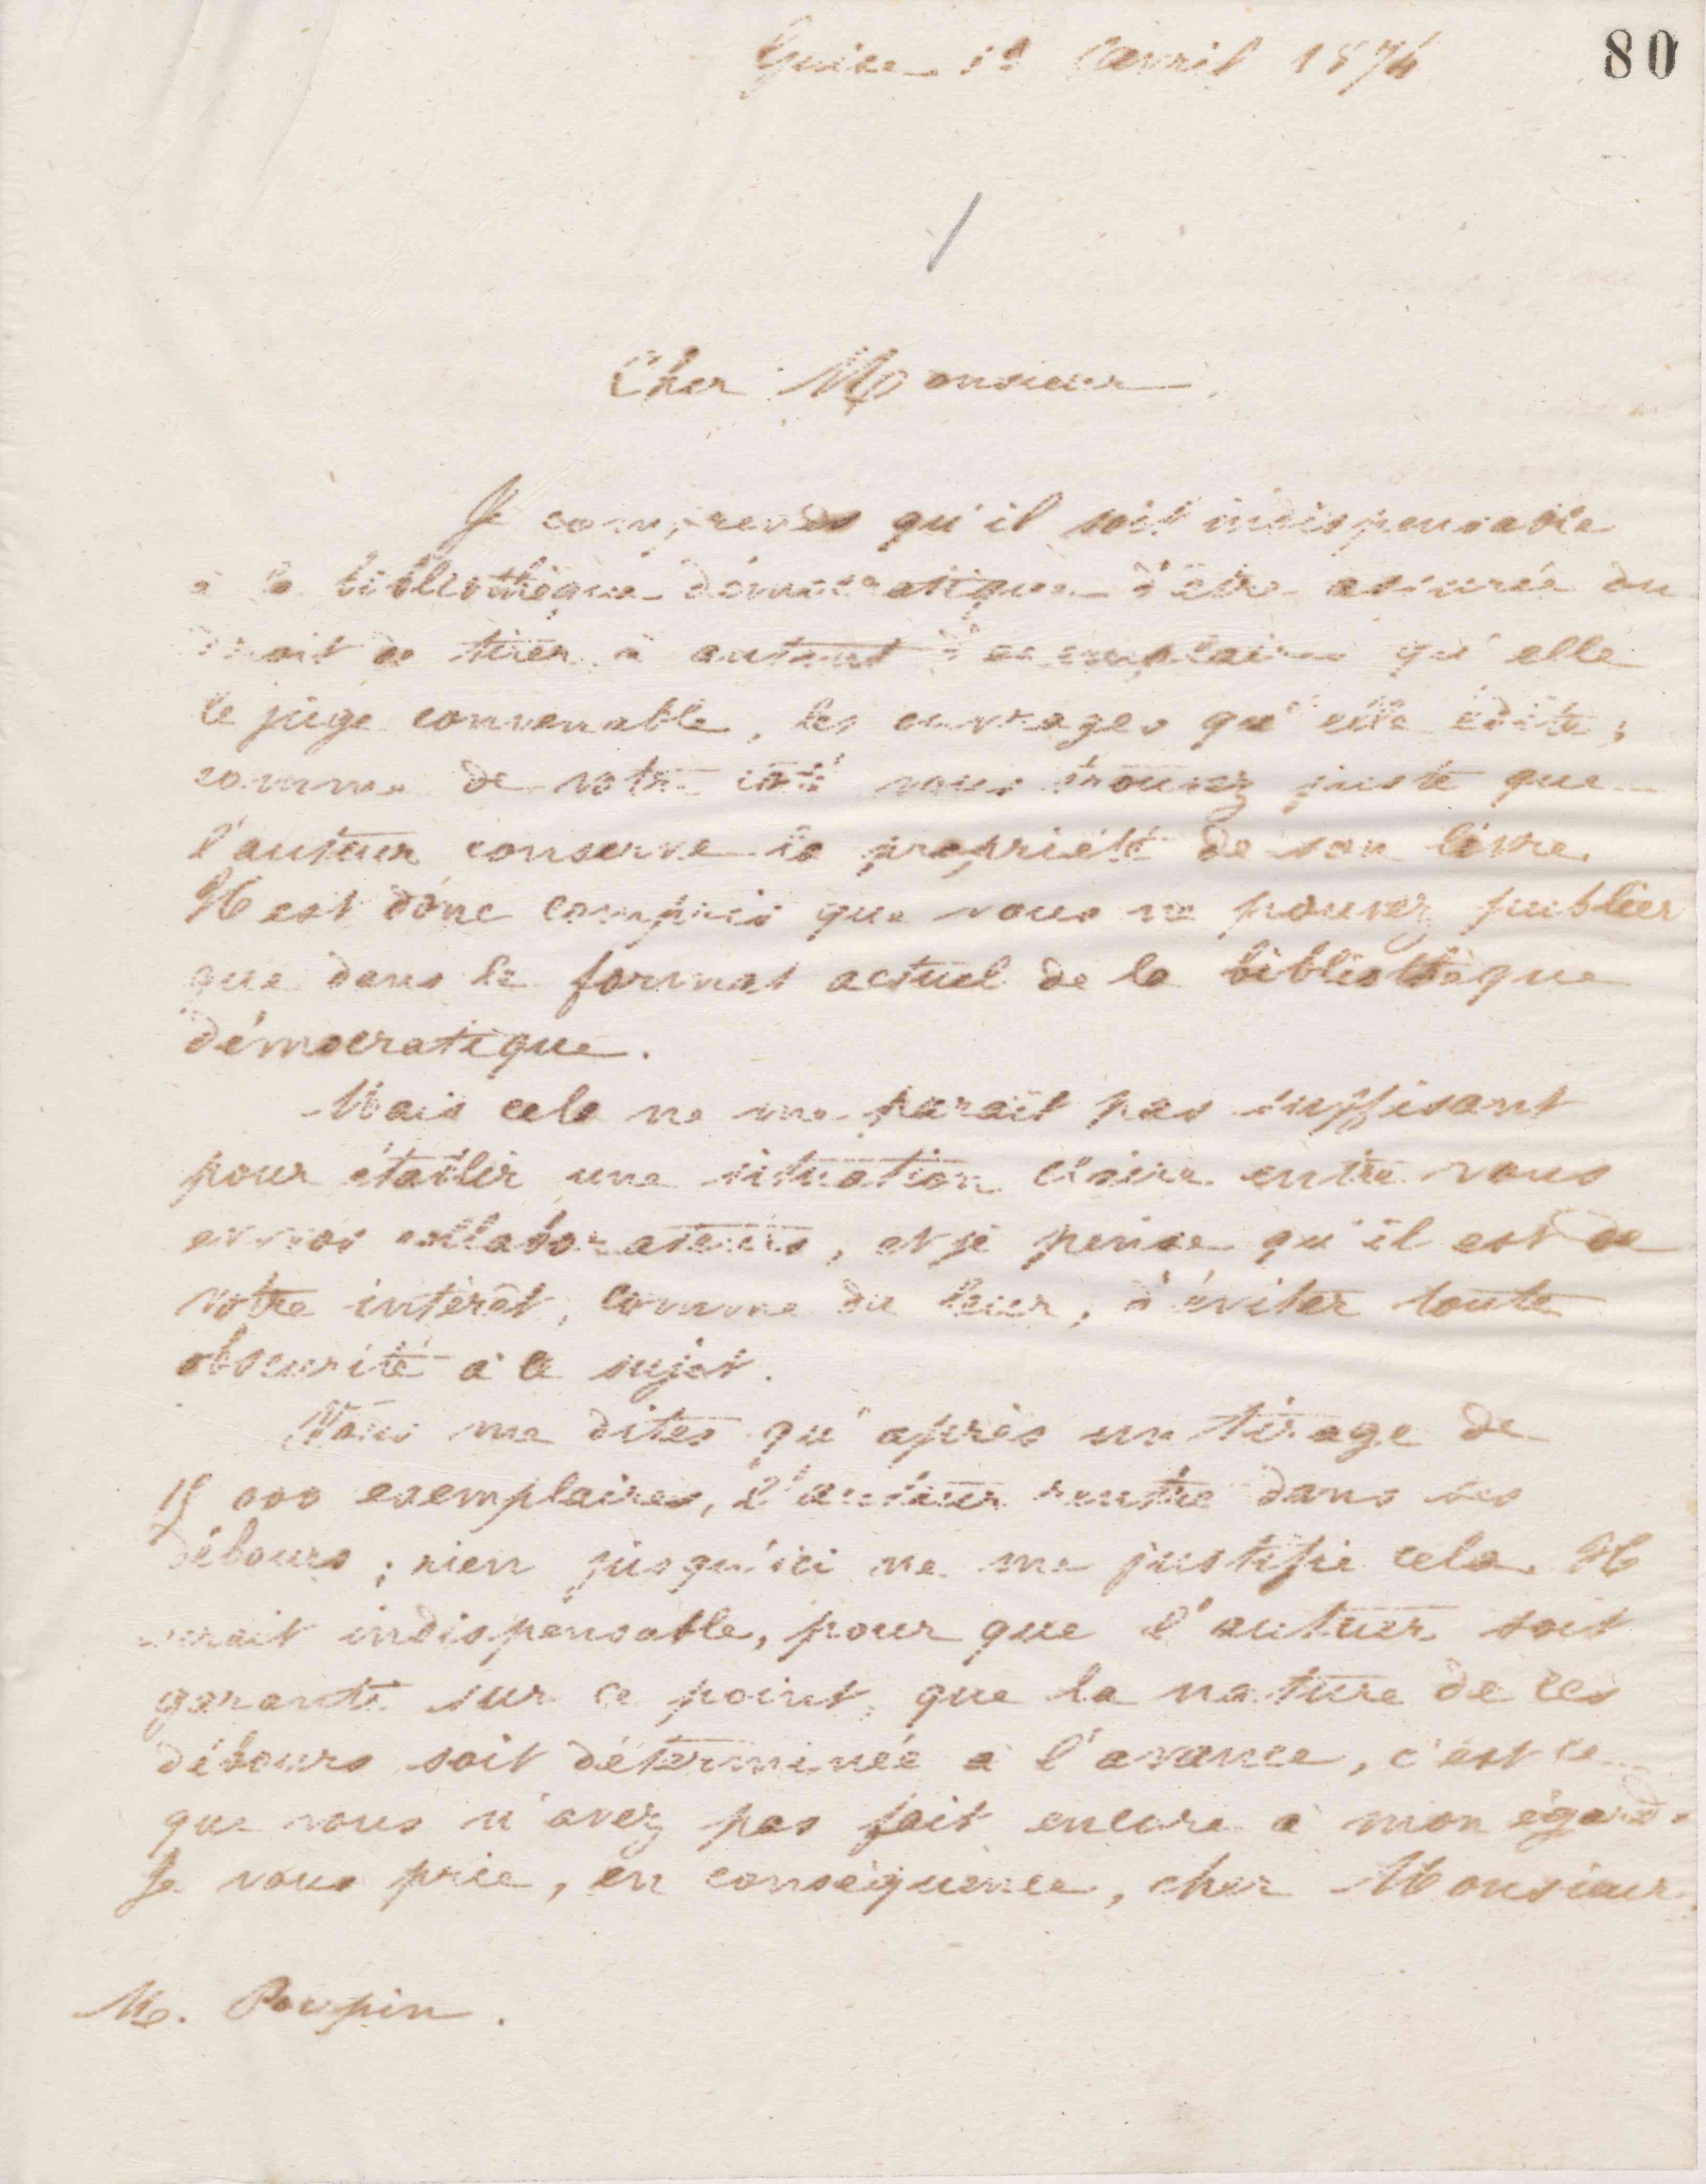 80
Guise Avril 1874
Cher Monsieur,
Je comprends qu'il soit indispensable
à la bibliothèque démocratique d'être assurée du
droit de tirer à autant d'exemplaires qu'elle
le juge convenable, les ouvrages qu'elle édite ;
comme de votre côté vous trouvez juste que
l'auteur conserve la propriété de son livre.
Il est donc compris que vous ne pouvez publier
que dans le format actuel de la bibliothèque
démocratique.
Mais cela ne me paraît pas suffisant
pour établir une situation claire entre vous
et vos collaborateurs, et je pense qu'il est de
votre intérêt, comme du leur, d'éviter toute
obscurité à ce sujet.
Vous me dites qu'après un tirage de
15 000 exemplaires, l'auteur rentre dans ses
débours ; rien jusqu'ici ne me justifie cela. Il
serait indispensable, pour que l'auteur soit
garanti sur ce point, que la nature de ces
débours soit déterminée à l'avance, c'est ce
que vous n'avez pas fait encore à mon égard.
Je vous prie, en conséquence, cher Monsieur,
M. Poupin.